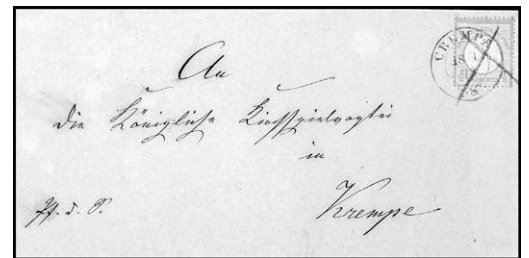 CREMPE
18
An
die Königliche Kirchspielvogtei
in
Krempe